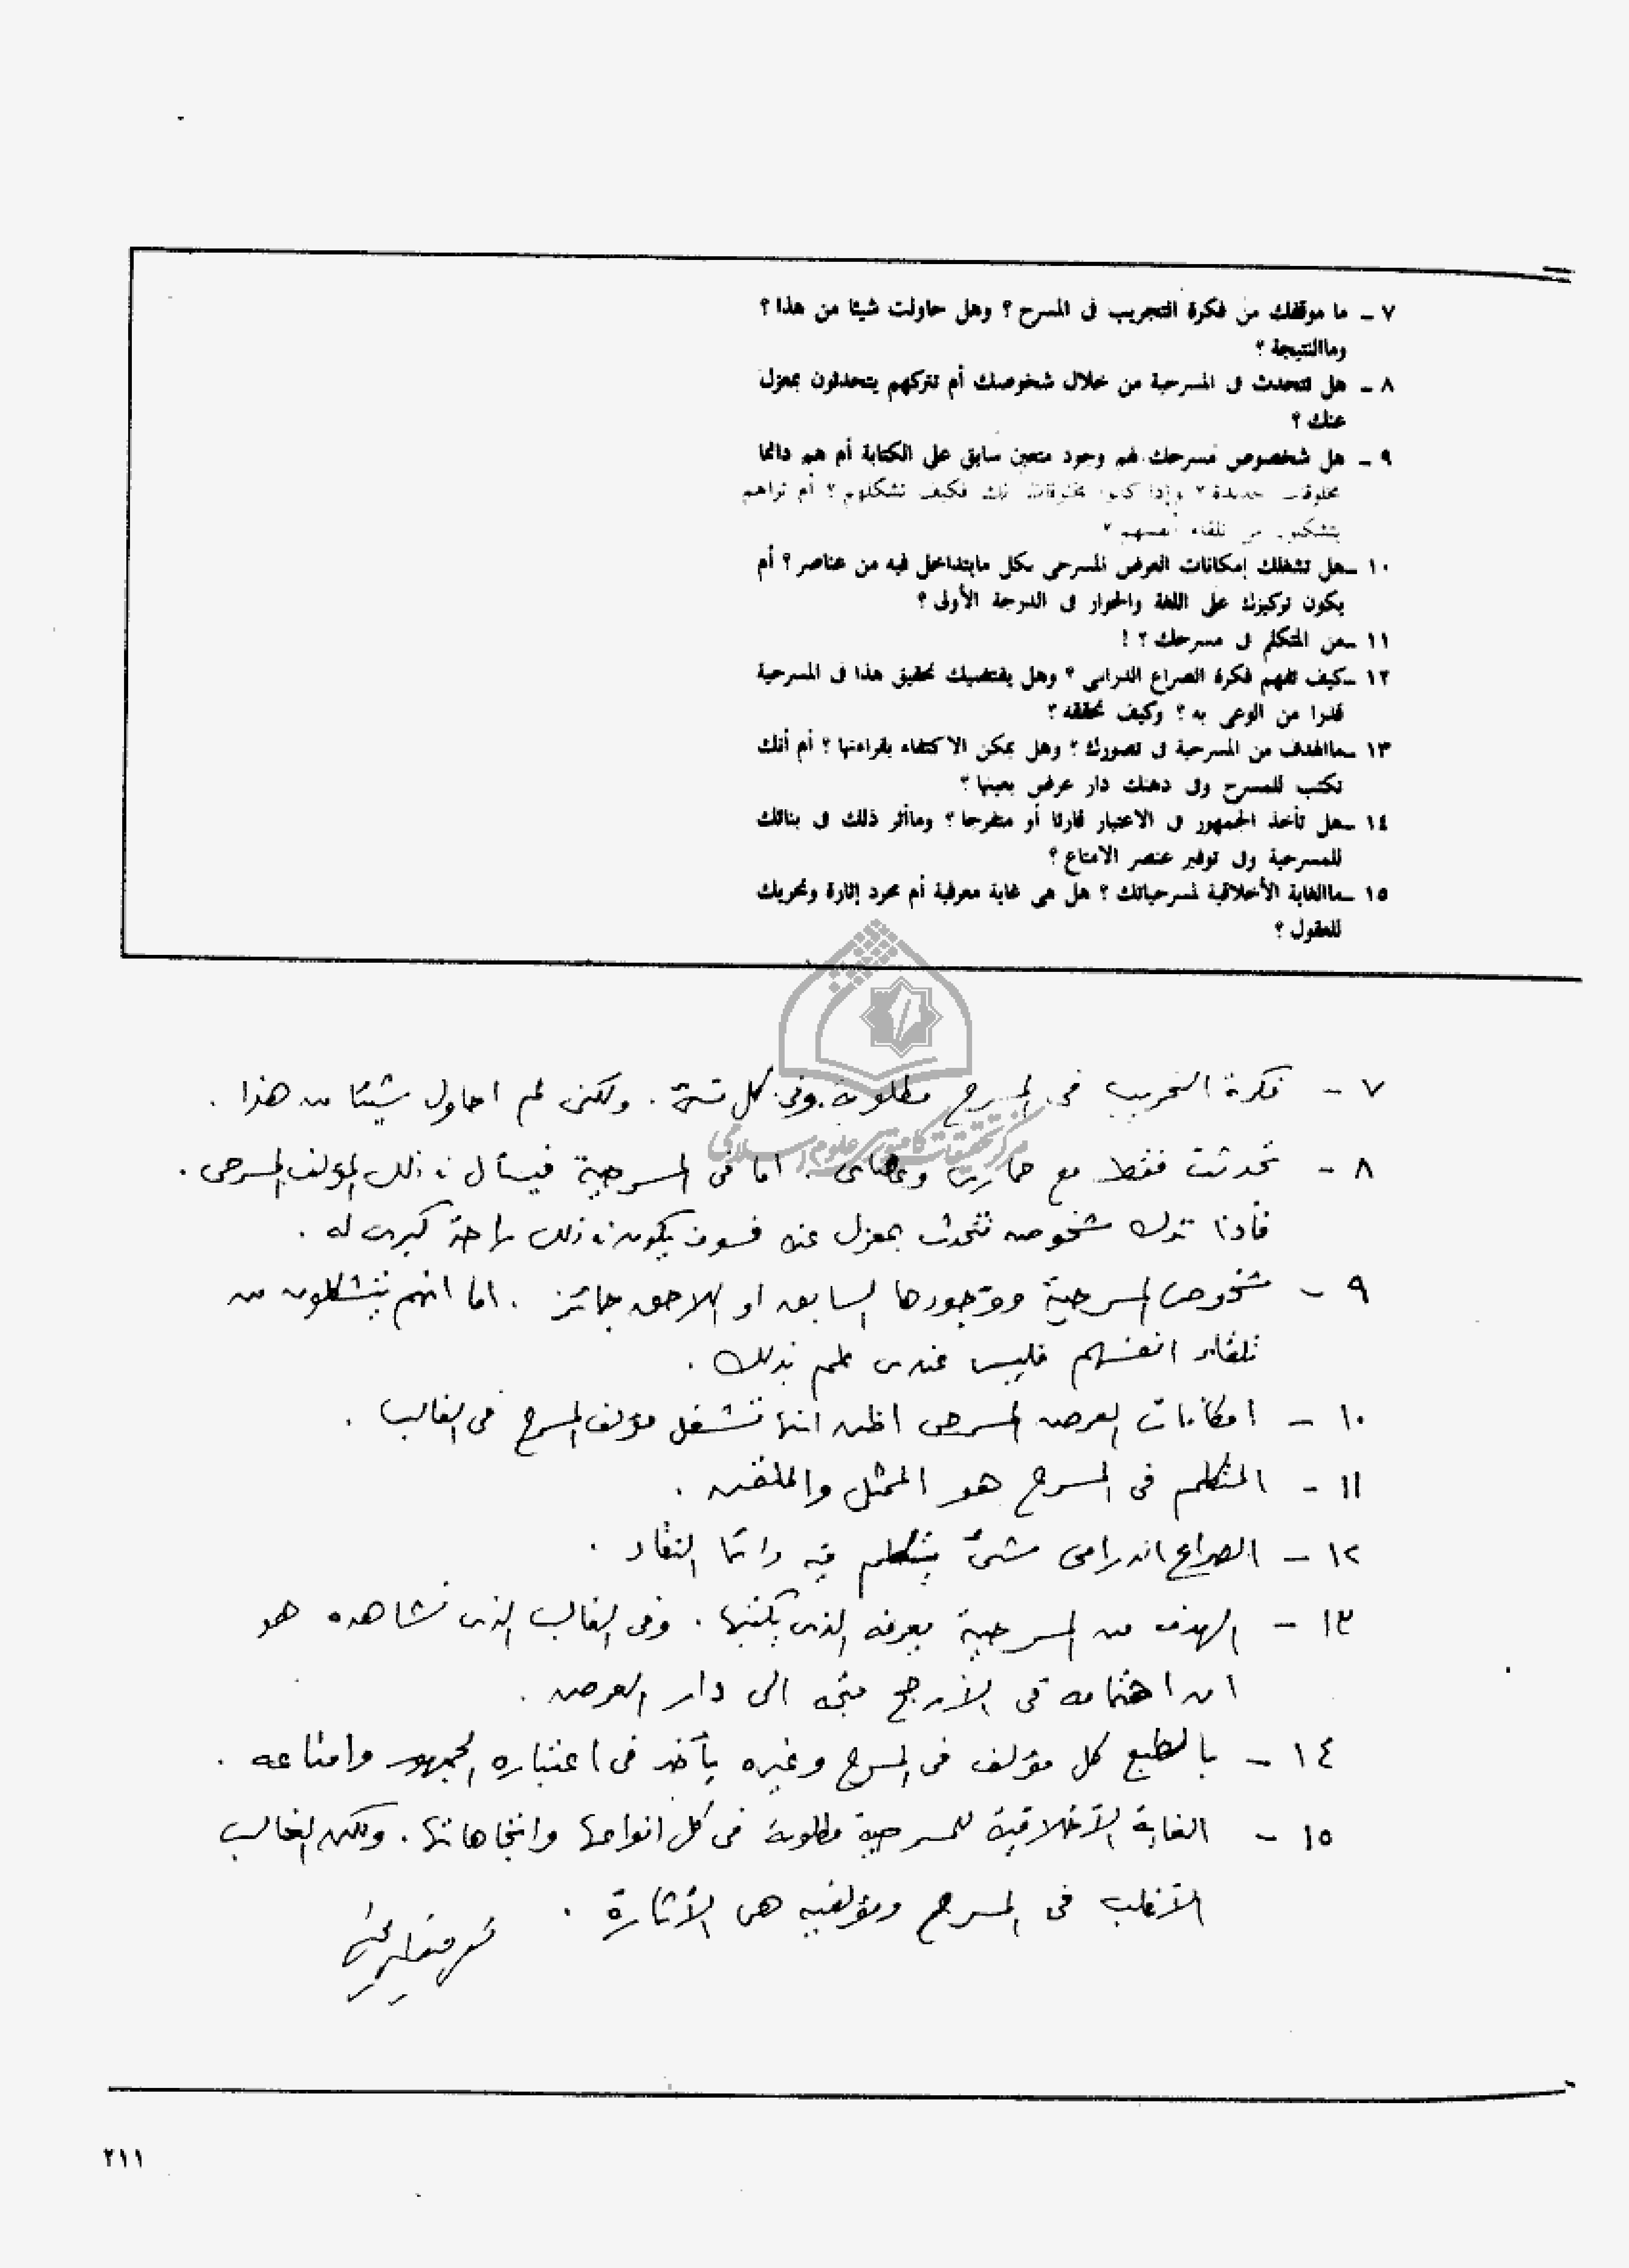 ٧ ــ ما موقفك من فكرة التجريب فى المسرح ؟ وهل حاولت شيئا من هذا ؟
وماالنتيجة ؟
٨ ــ هل تتحدث فى المسرحية من خلال شخوصك أم تتركهم يتحدثون بمعزل
عنك ؟
٩ ــ هل شخصوص مسرحك لهم وجود متعين سابق على الكتابة أم هم دائما
مخلوقات جديدة ؟ وإذا كانوا مخلوقات لك فكيف تشكلهم ؟ أم تراهم
يتشكلون من تلقاء أنفسهم ؟
١٠ ــهل تشغلك إمكانات العرض المسرحى بكل مايتداخل فيه من عناصر ؟ أم
يكون تركيزك على اللغة والحوار فى الدرجة الأولى ؟
١١ ــمن المتكلم فى مسرحك ؟ !
١٢ ــكيف تفهم فكرة الصراع الدرامى ؟ وهل يقتضيك تحقيق هذا فى المسرحية
قدرا من الوعى به ؟ وكيف تحققه ؟
١٣ ــماالهدف من المسرحية فى تصورك ؟ وهل يمكن الاكتفاء بقراءتها ؟ أم أنك
تكتب للمسرح وفى ذهنك دار عرض بعينها ؟
١٤ ــهل تأخذ الجمهور فى الاعتبار قارئا أو متفرجا ؟ وماأثر ذلك فى بنائك
للمسرحية وفى توفير عنصر الامتاع ؟
١٥ ــماالغاية الأخلاقية لمسرحياتك ؟ هل هى غاية معرفية أم مجرد إثارة وتحريك
للعقول ؟
مركز تحقيقات كامپيوتري علوم اسلامي
٧ - فكرة التجريب فى المسرح مطلوبة وفى كل . ولكنى لم احاول شيئا من هذا .
٨ - تحدثت فقط مع حمارى وعصاى . اما فى المسرحية فيسأل فى ذلك المؤلف المسرحى .
فأذا ترك شخوصه تتحدث بمعزل عنه فسوف يكون فى ذلك راحة كبرى له .
٩ - شخوص المسرحية ووجودها السابق او اللاحق جائز . اما انهم يتشكلون من
تلقاء انفسهم فليس عندى علم بذلك .
١٠ - امكانات العرض المسرحى اظن انها تشغل مؤلف المسرح فى الغالب .
١١ - المتكلم فى المسرح هو الممثل والملقن .
١٢ - الصراع الدرامى شىء يتكلم فيه دائما النقاد .
١٣ - الهدف من المسرحية يعرفه الذى يكتبها . وفى الغالب الذى نشاهده هو
ان اهتمامه فى الأرجح متجه الى دار العرض .
١٤ - بالطبع كل مؤلف فى المسرح وغيره يأخذ فى اعتباره الجمهور وامتاعه .
١٥ - الغاية الأخلاقية للمسرحية مطلوبة فى كل انواعها واتجاهاتها . ولكن الغالب
الأغلب فى المسرح ومؤلفيه هى الأثارة .
٢١١